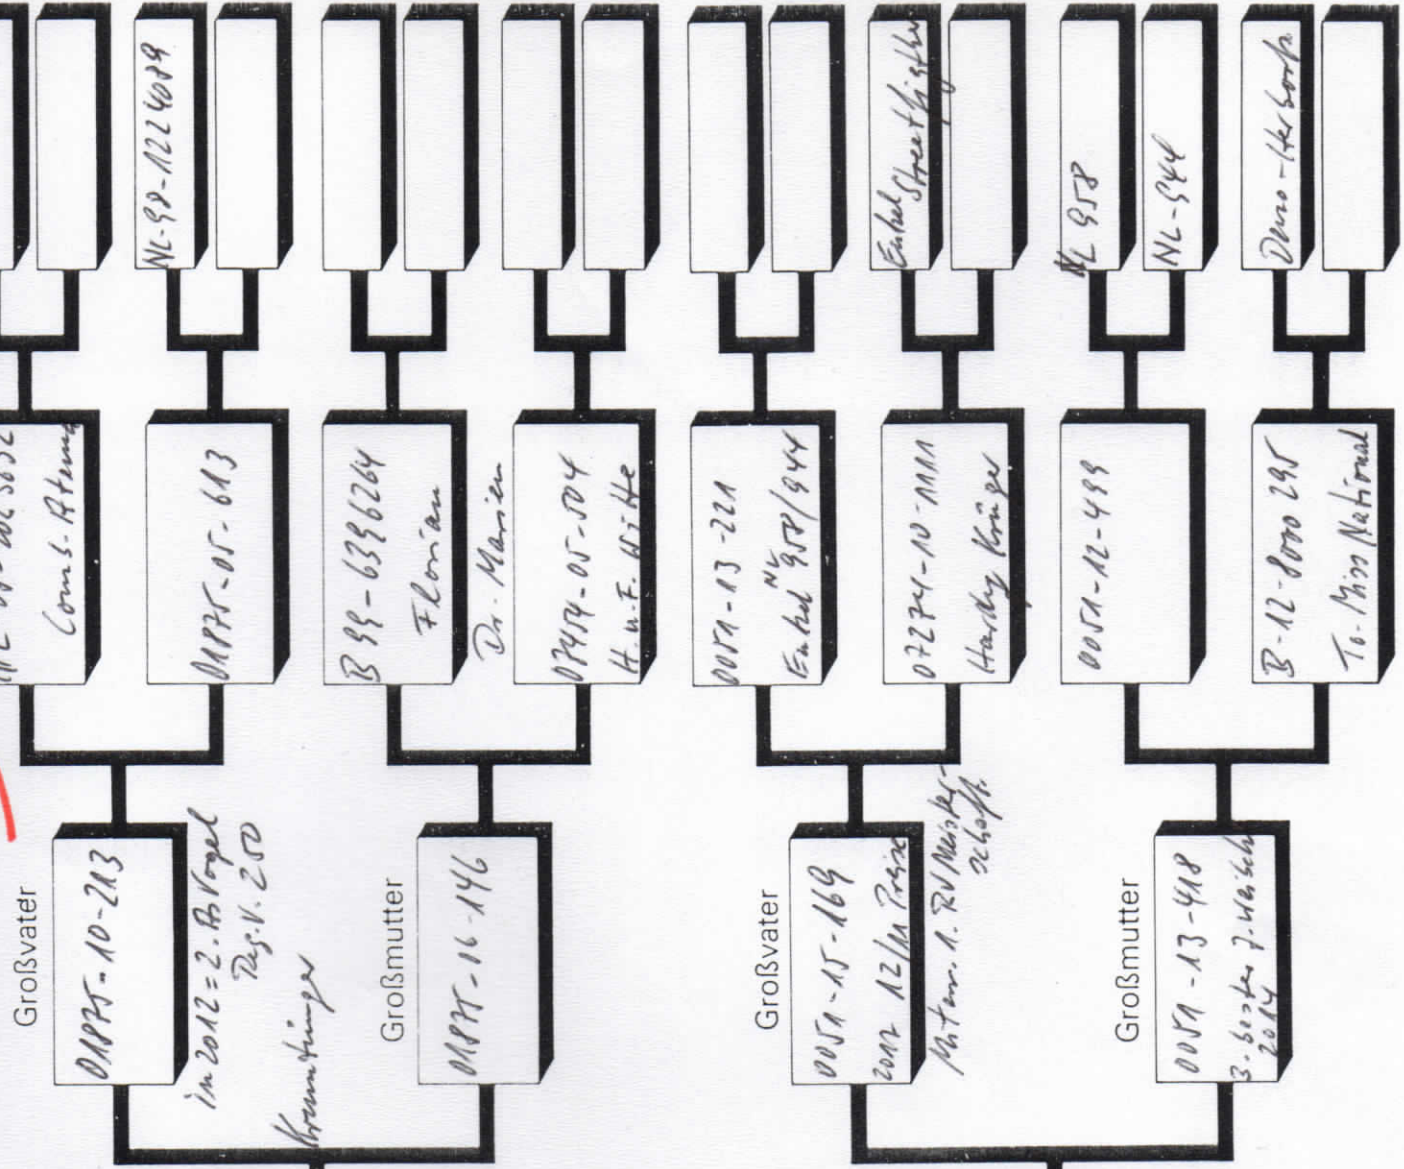 NL-98-1224089
Enkel
Streetfighter
NL 958
NL-944
01875-05-613
B 99-6396264
Florian
Dr. Marien
07454-05-504
H.u.F. Witte
0051-13-221
NL
Enkel 958/944
07274-10-1111
Hardy Krüger
0051-12-499
B-12-8000295
To. Miss National
Großvater
01875-10-213
in 2012 = 2. As Vogel
Reg. V. 250
Großmutter
01875-06-146
Großvater
0051-15-169
2017 12/11 Preise
1. RV Meister-
schaft.
Großmutter
0051-13-418
3. bester
2014